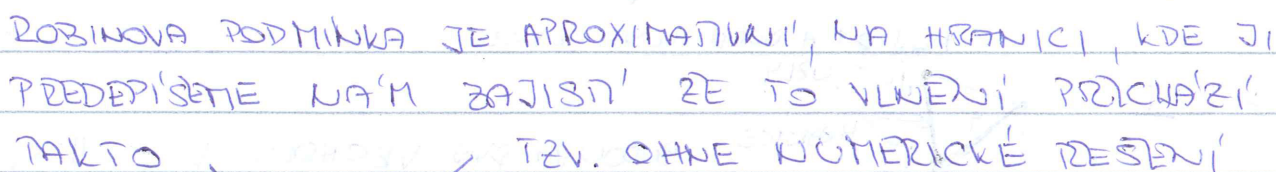 ROBINOVA PODMÍNKA JE APROXIMATIVNÍ, NA HRANICI, KDE JI
PŘEDEPÍŠEME NÁM ZAJISTÍ ZE TO VLNĚNÍ PŘICHÁZÍ
TAKTO , , TZV. OHNE NUMERICKÉ ŘEŠENÍ